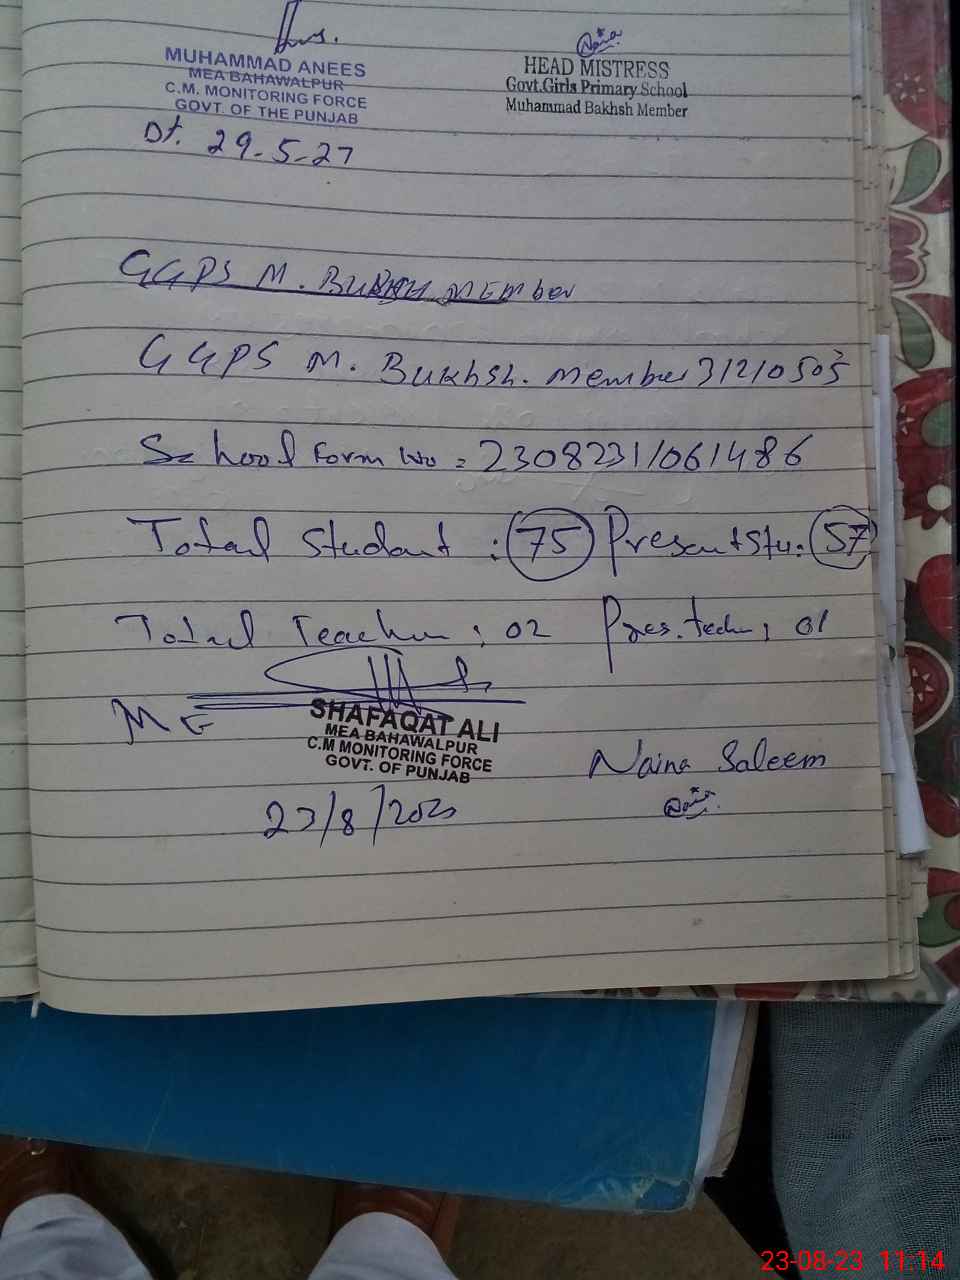 MUHAMMAD ANEES
MEA BAHAWALPUR
C.M. MONITORING FORCE
GOVT. OF THE PUNJAB
Dt. 29-5-27
HEAD MISTRESS
Govt.Girls Primary School
Muhammad Bakhsh Member
GGPS M. BUKHSH MEMber
GGPS M. Bukhsh. Member 31210505
School Form No = 23082311061486
Total Student : 75 Present Stu: 57
Total Teacher : 02 Pres. teach : 01
SHAFAQAT ALI
MEA BAHAWALPUR
C.M MONITORING FORCE
GOVT. OF PUNJAB
23/8/2023
Naina Saleem
23-08-23 11:14